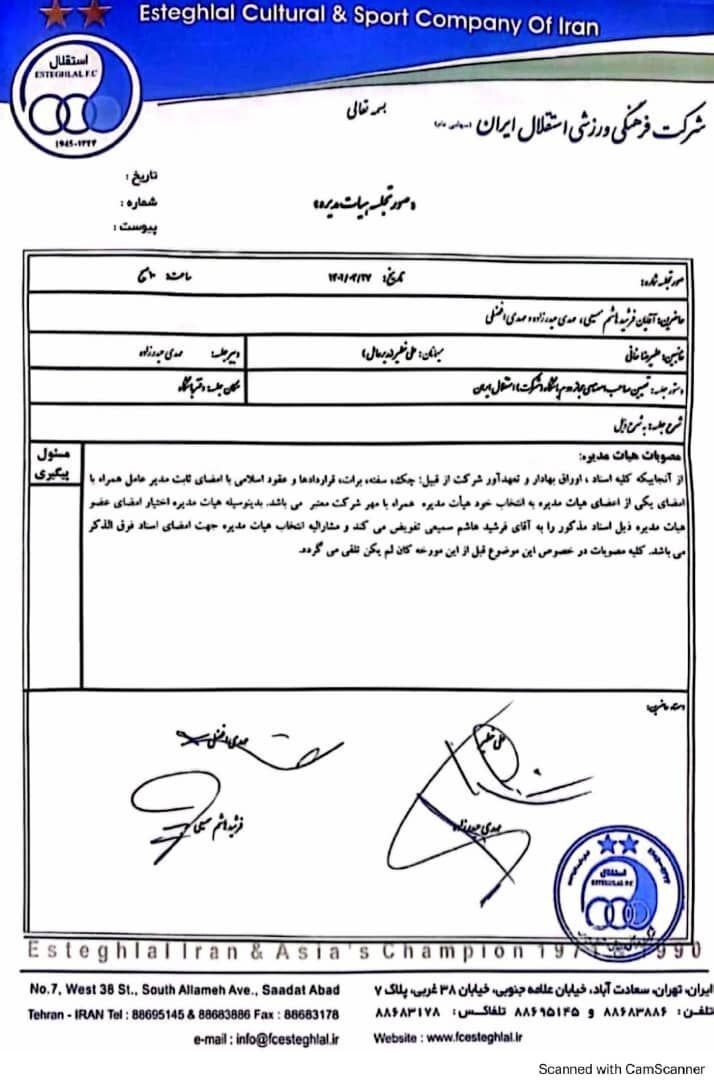 Esteghlal Cultural & Sport Company Of Iran
استقلال
ESTEGHLAL F.C
۱۹۴۵-۱۳۲۴
بسمه تعالی
شرکت فرهنگی ورزشی استقلال ایران (سهامی عام)
تاریخ :
شماره :
پیوست :
«صورتجلسه هیات مدیره»
صورتجلسه شماره: تاریخ: ساعت: ۱۰ صبح
حاضرین: آقایان فرشید هاشم سمیعی، مهدی حیدرزاده و مهدی افضلی
غایبین: علیرضا خانی میهمان: علی خطیر (مدیرعامل) دبیر جلسه: مهدی حیدرزاده
دستور جلسه: تعیین صاحب امضای مجاز دوم باشگاه (شرکت) استقلال ایران مکان جلسه: دفتر باشگاه
شرح جلسه: به شرح ذیل
مصوبات هیات مدیره:
مسئول پیگیری
از آنجاییکه کلیه اسناد ، اوراق بهادار و تعهدآور شرکت از قبیل: چک، سفته، برات، قراردادها و عقود اسلامی با امضای ثابت مدیر عامل همراه با
امضای یکی از اعضای هیات مدیره به انتخاب خود هیأت مدیره همراه با مهر شرکت معتبر می باشد. بدینوسیله هیات مدیره اختیار امضای عضو
هیات مدیره ذیل اسناد مذکور را به آقای فرشید هاشم سمیعی تفویض می کند و مشارالیه انتخاب هیات مدیره جهت امضای اسناد فوق الذکر
می باشد. کلیه مصوبات در خصوص این موضوع قبل از این مورخه کان لم یکن تلقی می گردد.
امضاء حاضرین:
علی خطیر
مهدی افضلی
مهدی حیدرزاده
فرشید هاشم سمیعی
استقلال
ESTEGHLAL F.C
Esteghlal Iran & Asia's Champion 1971 & 1990
No.7, West 38 St., South Allameh Ave., Saadat Abad
Tehran - IRAN Tel : 88695145 & 88683886 Fax : 88683178
e-mail : info@fcesteghlal.ir
ایران، تهران، سعادت آباد، خیابان علامه جنوبی، خیابان ۳۸ غربی، پلاک ۷
تلفن: ۸۸۶۸۳۸۸۶ و ۸۸۶۹۵۱۴۵ تلفاکس: ۸۸۶۸۳۱۷۸
Website : www.fcesteghlal.ir
Scanned with CamScanner